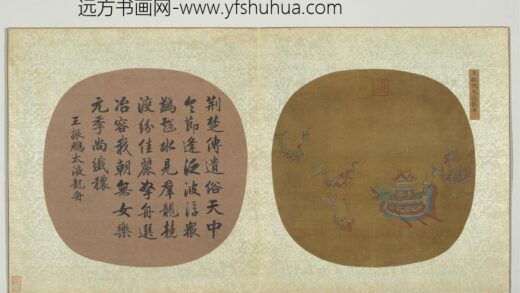 远方书画网-www.yfshuhua.com
荆楚傳遺俗天中
令節逢泛波浮衆
鷁戲水見羣龍競
渡紛佳麗拏舟選
冶容我朝無女樂
元季尚纖穠
王振鵬太液龍舟